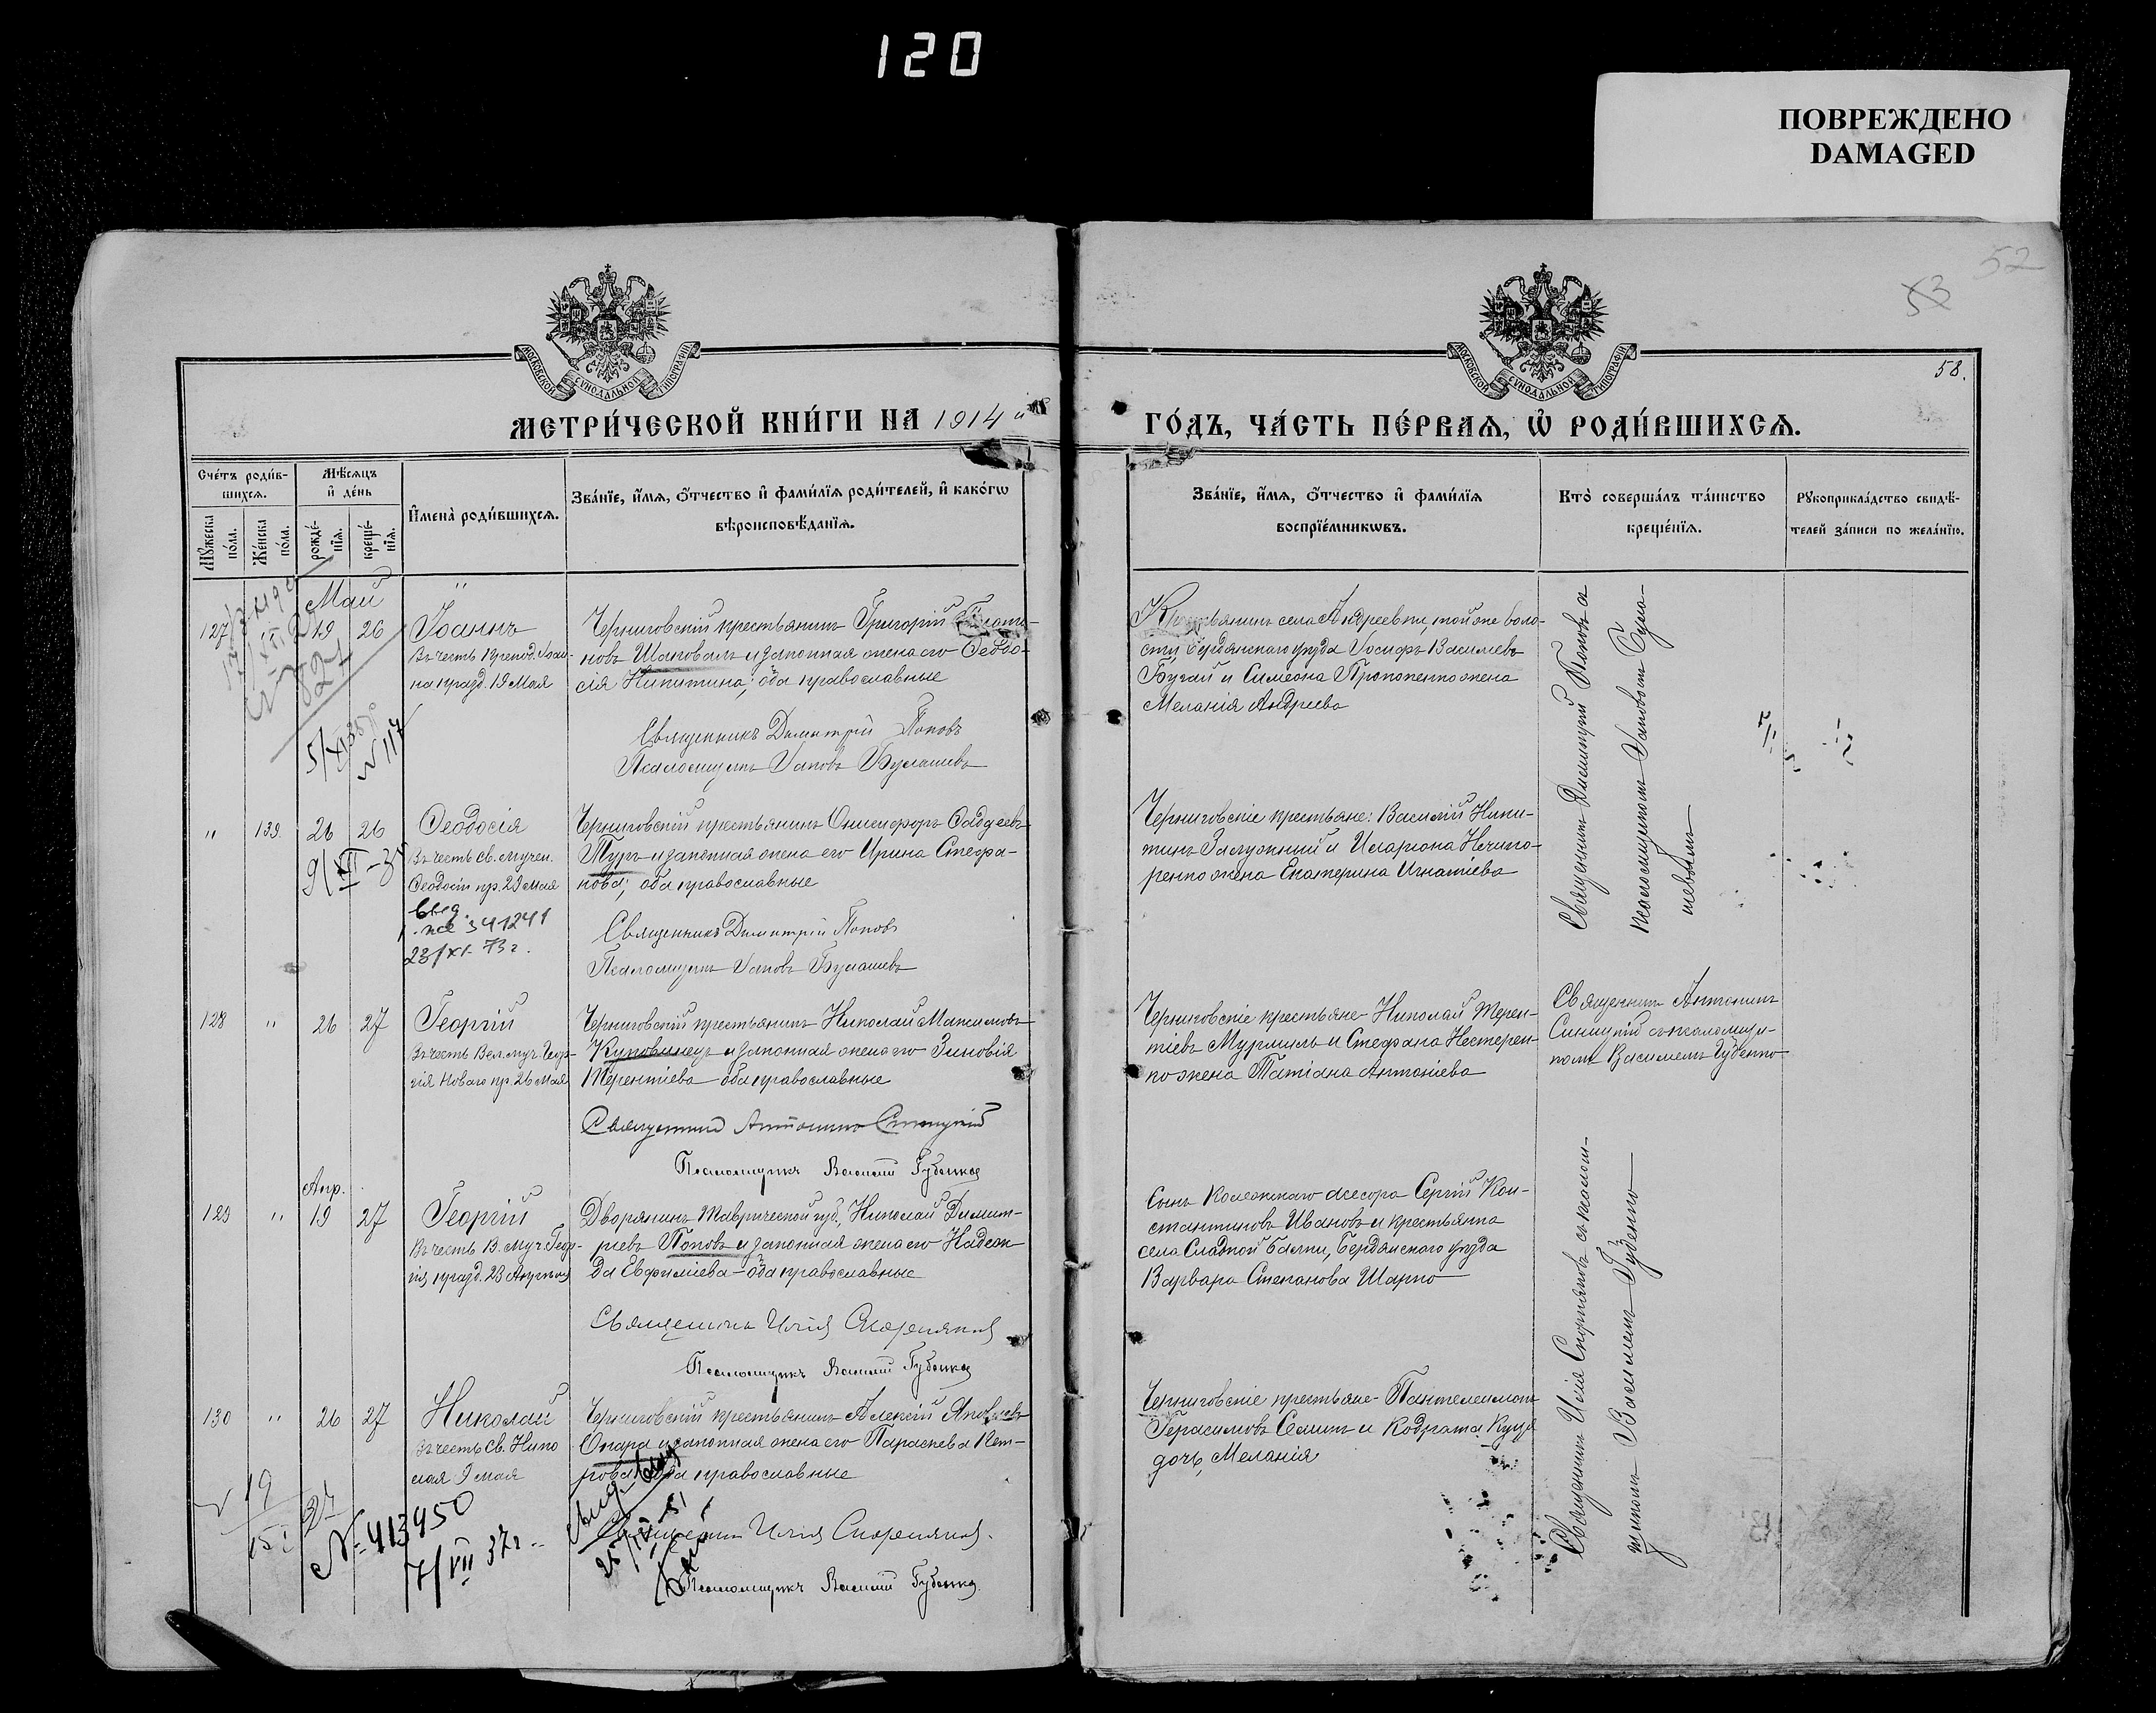 120
ПОВРЕЖДЕНО
DAMAGED
52
53
58.
МОСКОВСКОЙ СѴНОДАЛЬНОЙ ТИПОГРАФІИ
МОСКОВСКОЙ СѴНОДАЛЬНОЙ ТИПОГРАФІИ
МЕТРИ́ЧЕСКОЙ КНИ́ГИ НА 1914 й
ГО́ДЪ, ЧА́СТЬ ПЕ́РВАѦ, Ѡ҆ РОДИ́ВШИХСѦ.
Сче́тъ роди́в-
шихсѧ.
Мꙋ́жеска по́ла.
Же́нска по́ла.
Мѣ́сѧцъ
и҆ де́нь
рожде́-
нїѧ.
креще́-
нїѧ.
И҆мена̀ роди́вшихсѧ.
Зва́нїе, и҆́мѧ, ѻ҆́тчество и҆ фами́лїѧ роди́телей, и҆ како́гѡ
вѣроисповѣ́данїѧ.
Зва́нїе, и҆́мѧ, ѻ҆́тчество и҆ фами́лїѧ
воспрїе́мникѡвъ.
Кто̀ соверша́лъ та́инство
креще́нїѧ.
Рꙋкоприкла́дство свидѣ́-
телей за́писи по жела́нїю.
Май
127 " 19 26 Іоаннъ
Въ честь Препод. Іоан-
на празд. 19 Мая
Черниговскій крестьянинъ Григорій
новъ Шаповалъ и законная жена его Ѳеодо-
сія Никитина; оба православные
Священникъ Димитрій Поповъ
Псаломщикъ Іаковъ Булашевъ
5/XI 35 г.
N 117
Крестьянинъ села Андреевки, той же воло-
сти Бердянскаго уѣзда Іосифъ Василіевъ
Бугай и Симеона Прокопенко жена
Меланія Андреева
Священникъ Димитрій Поповъ съ
псаломщикомъ Іаковомъ Була-
шевымъ
" 139. 26 26 Ѳеодосія
Въ честь св. мучен.
Ѳеодосіи пр. 29 Мая
9/XII-35
341241
23/XI-73 г.
Черниговскій крестьянинъ Онисифоръ Ѳаддеевъ
Туръ и законная жена его Ирина Стефа-
нова; оба православные
Священникъ Димитрій Поповъ
Псаломщикъ Іаковъ Булашевъ
Черниговскіе крестьяне: Василій Ники-
тинъ Заслужный и Иларіона Нечипо-
ренко жена Екатерина Игнатіева
128 " 26 27 Георгій
Въ честь Вел. муч. Геор-
гія Новаго пр. 26 Мая
Черниговскій крестьянинъ Николай Максимовъ
Куповинецъ и законная жена его Зиновія
Терентіева оба православные
Священникъ Антонинъ Синицкій
Псаломщикъ Василій Губенко
Черниговскіе крестьяне Николай Терен-
тіевъ Мурмиль и Стефана Нестерен-
ко жена Татіана Антоніева
Священникъ Антонинъ
Синицкій съ псаломщи-
комъ Василіемъ Губенко
Апр.
129 " 19 27 Георгій
Въ честь В. муч. Геор-
гія празд. 23 Апрѣля
Дворянинъ Таврической губ., Николай Димит-
ріевъ Поповъ и законная жена его Надеж-
да Евфиміева - оба православные
Священникъ Илія Скорняковъ
Псаломщикъ Василій Губенко
Сынъ Колежскаго асесора Сергій Кон-
стантиновъ Ивановъ и крестьянка
села Сладкой Балки, Бердянскаго уѣзда
Варвара Степанова Шарко
Священникъ Илія Скорняковъ съ псалом-
щикомъ Василіемъ Губенко
130 " 26 27 Николай
Въ честь Св. Нико
лая 9 мая
Черниговскій крестьянинъ Алексій Яковлевъ
Опара и законная жена его Параскева Пет-
рова оба православные
Священникъ Илія Скорняковъ.
Псаломщикъ Василій Губенко.
Черниговскіе крестьяне - Пантелеимонъ
Герасимовъ Сешинъ и Кодрата Куцъ
дочь, Меланія
№ 413450
7/VII 37 г.